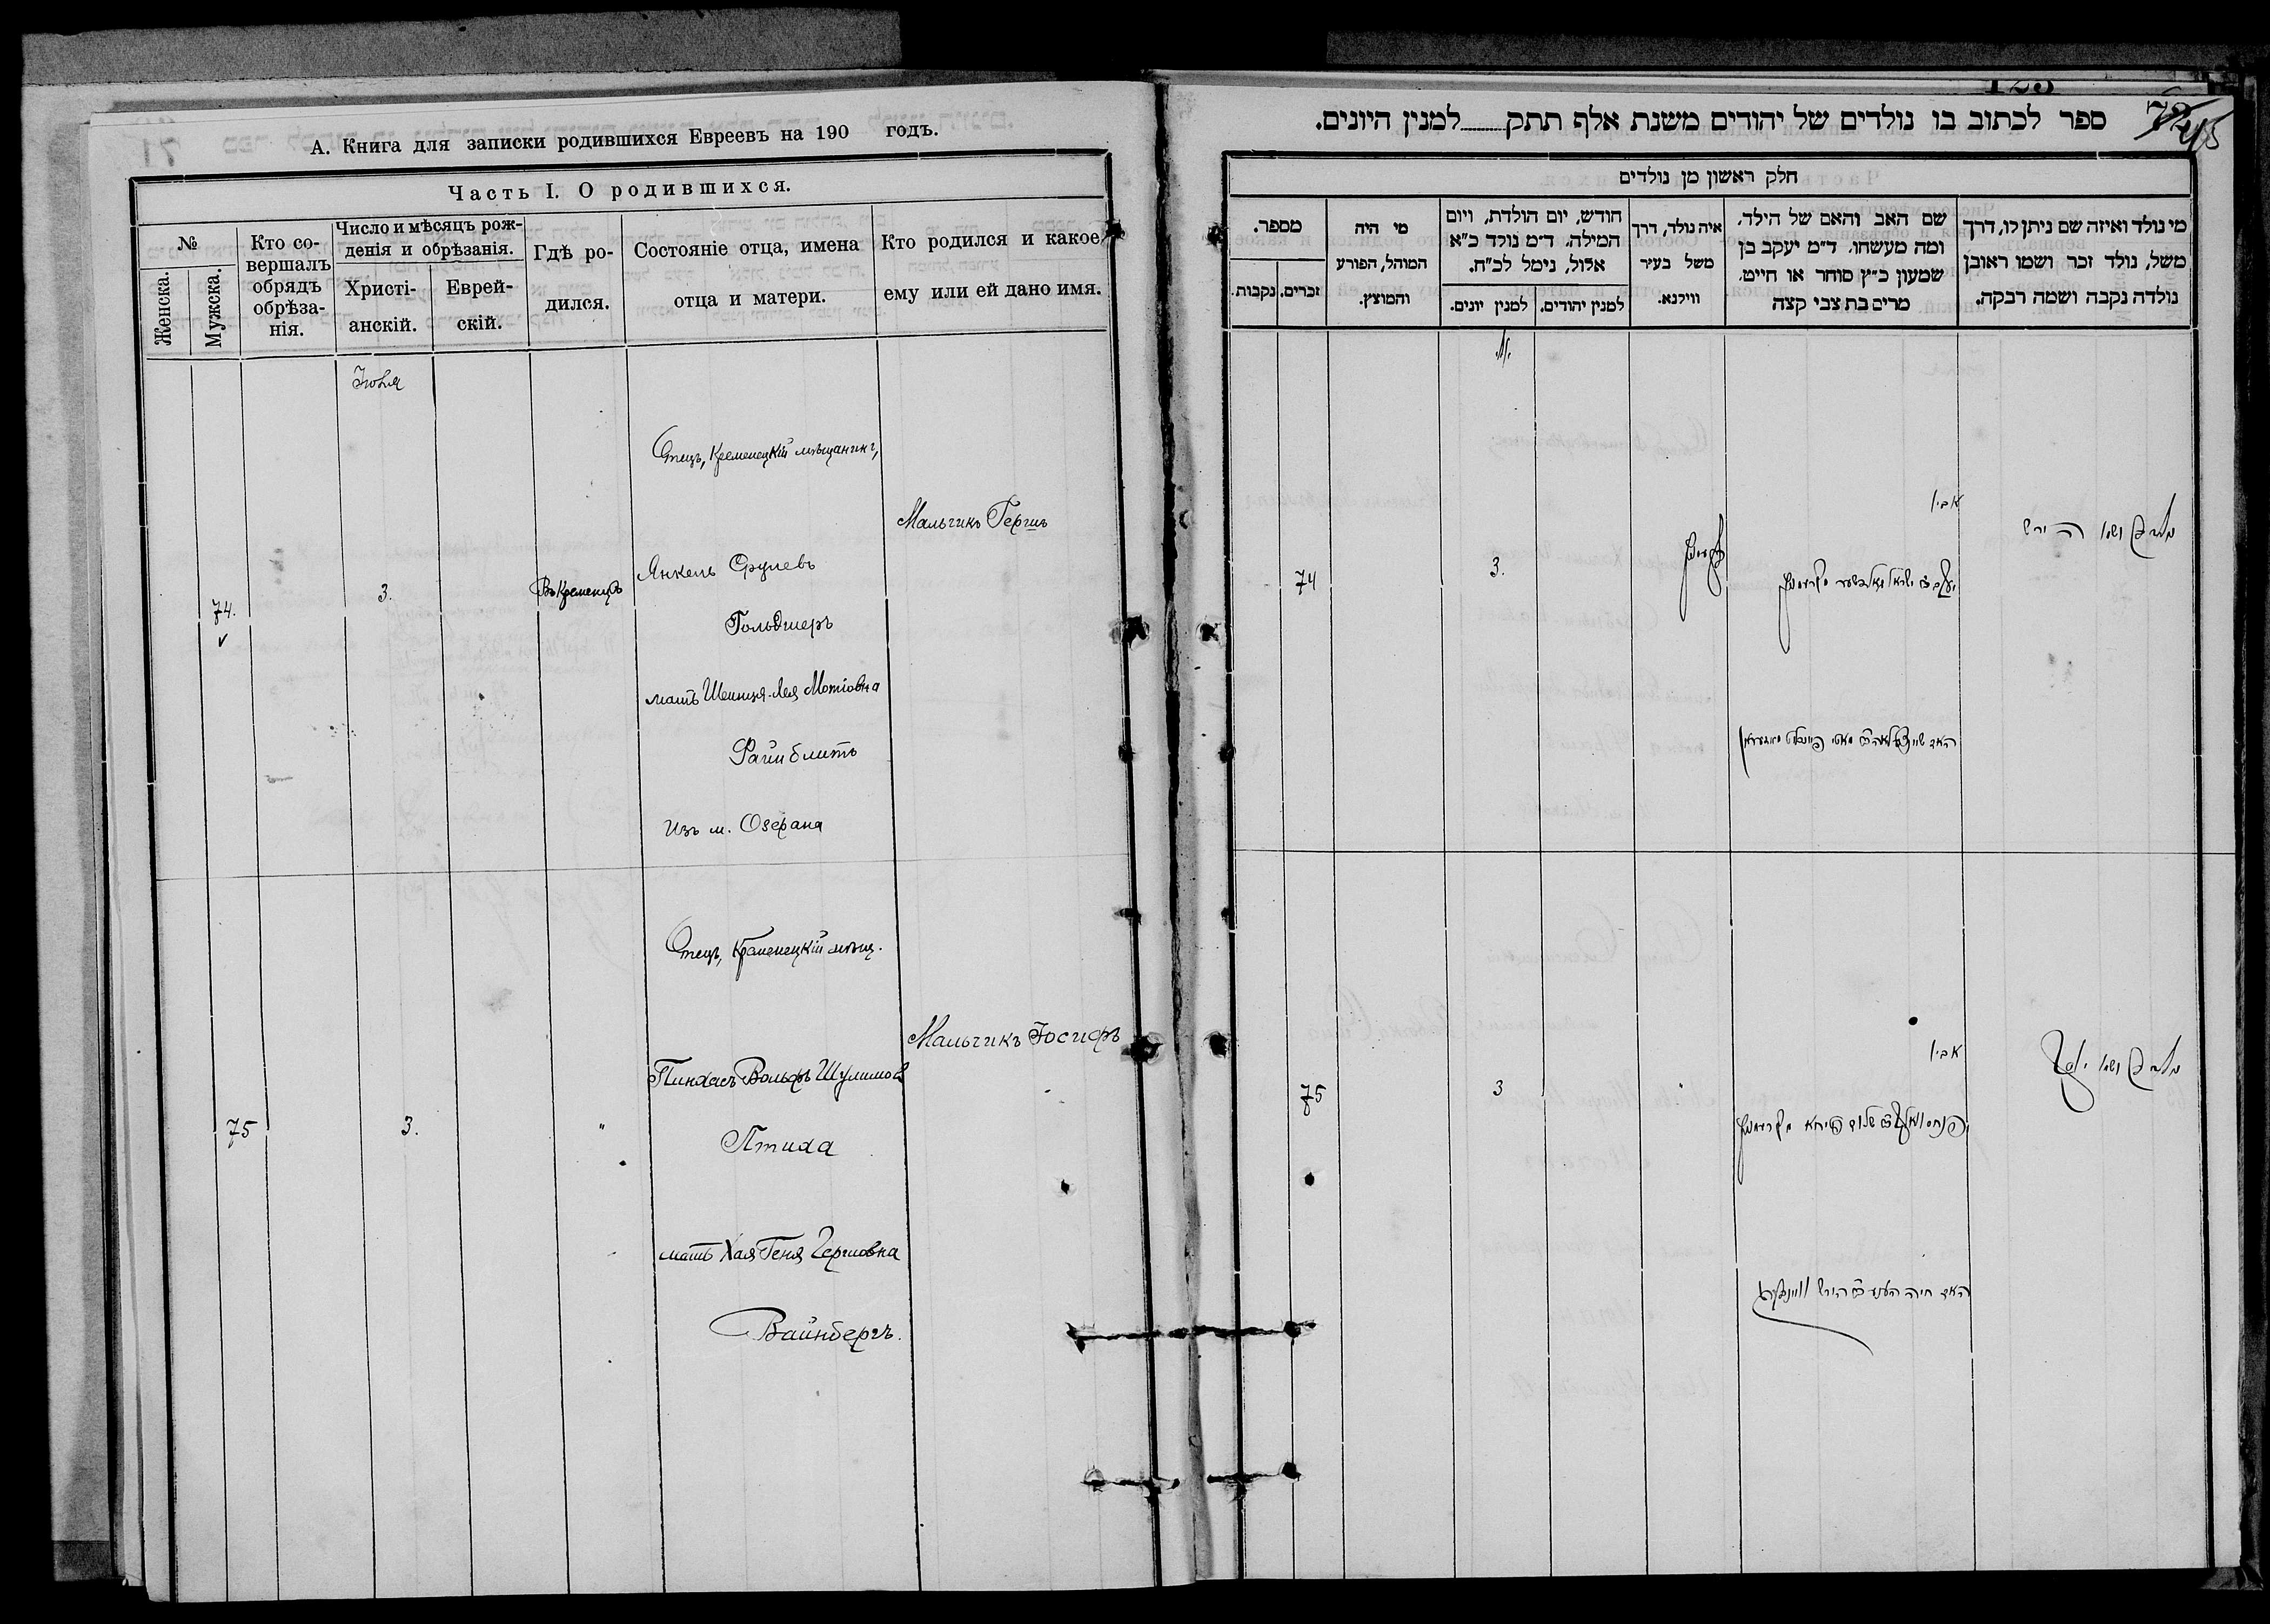 А. Книга для записки родившихся Евреевъ на 190 годъ.
Часть I. О родившихся.
№
Женска.
Мужска.
Кто со-
вершалъ
обрядъ
обрѣза-
нія.
Число и мѣсяцъ рож-
денія и обрѣзанія.
Христі-
анскій.
Еврей-
скій.
Гдѣ ро-
дился.
Состояніе отца, имена
отца и матери.
Кто родился и какое
ему или ей дано имя.
Юля
Отецъ, Кременецкій мѣщанинъ,
Мальчикъ Гершъ
74.
3.
Въ Кременцѣ
Янкель Срулевъ
Гольдшеръ
мать Шейнця-Лея Мотіовна
Файнблитъ
изъ м. Озерана
Отецъ, Кременецкій мѣщ.
Мальчикъ Іосифъ
75
3.
"
Пинхасъ Вольфъ Шулимов
Птиха
мать Хая Геня Гершовна
Вайнбергъ.
ספר לכתוב בו נולדים של יהודים משנת אלף תתק למנין היונים.
חלק ראשון מן נולדים
מספר.
זכרים.
נקבות.
מי היה
המוהל, הפורע
והמוצץ.
חודש, יום הולדת, ויום
המילה. ד״מ נולד כ״א
אלול, נימל לכ״ח.
למנין יהודים.
למנין יונים.
איה נולד, דרך
משל בעיר
ווילנא.
שם האב והאם של הילד,
ומה מעשהו. ד״מ יעקב בן
שמעון כ״ץ סוחר או חייט,
מרים בת צבי קצה
מי נולד ואיזה שם ניתן לו, דרך
משל, נולד זכר ושמו ראובן
נולדה נקבה ושמה רבקה.
74
3.
אביו
ושמו הירש
75
3
אביו
ושמו יוסף
האם חיה הענע הירש וויינבערג